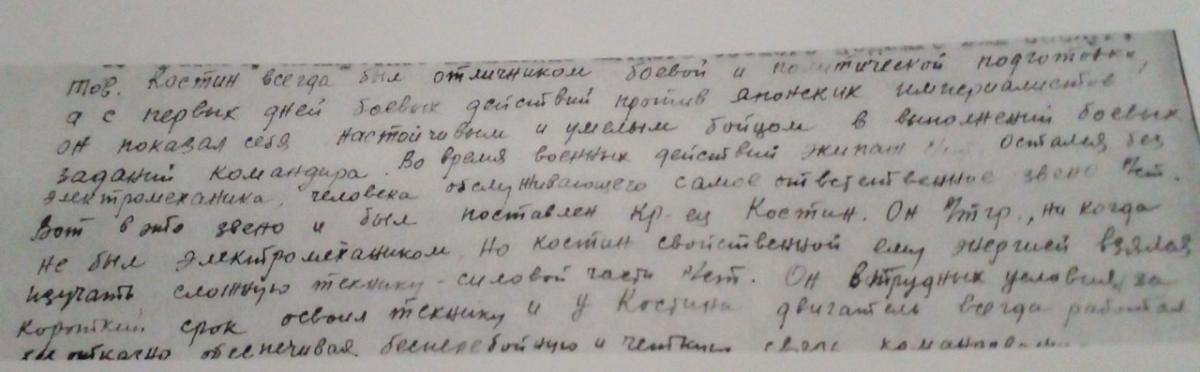 тов. Костин всегда был отличником боевой и политической подготовки,
а с первых дней боевых действий против японских империалистов
он показал себя настойчивым и умелым бойцом в выполнении боевых
заданий командира. Во время военных действий экипаж остался без
электромеханика, человека обслуживающего самое ответственное звено р/ст.
Вот в это звено и был поставлен кр-ец Костин. Он р/тгр., ни когда
не был электромехаником, но Костин свойственной ему энергией взялся
изучать сложную технику - силовой части р/ст. Он в трудных условиях за
короткий срок освоил технику и у Костина двигатель всегда работал
безотказно обеспечивая бесперебойную и четкую связь